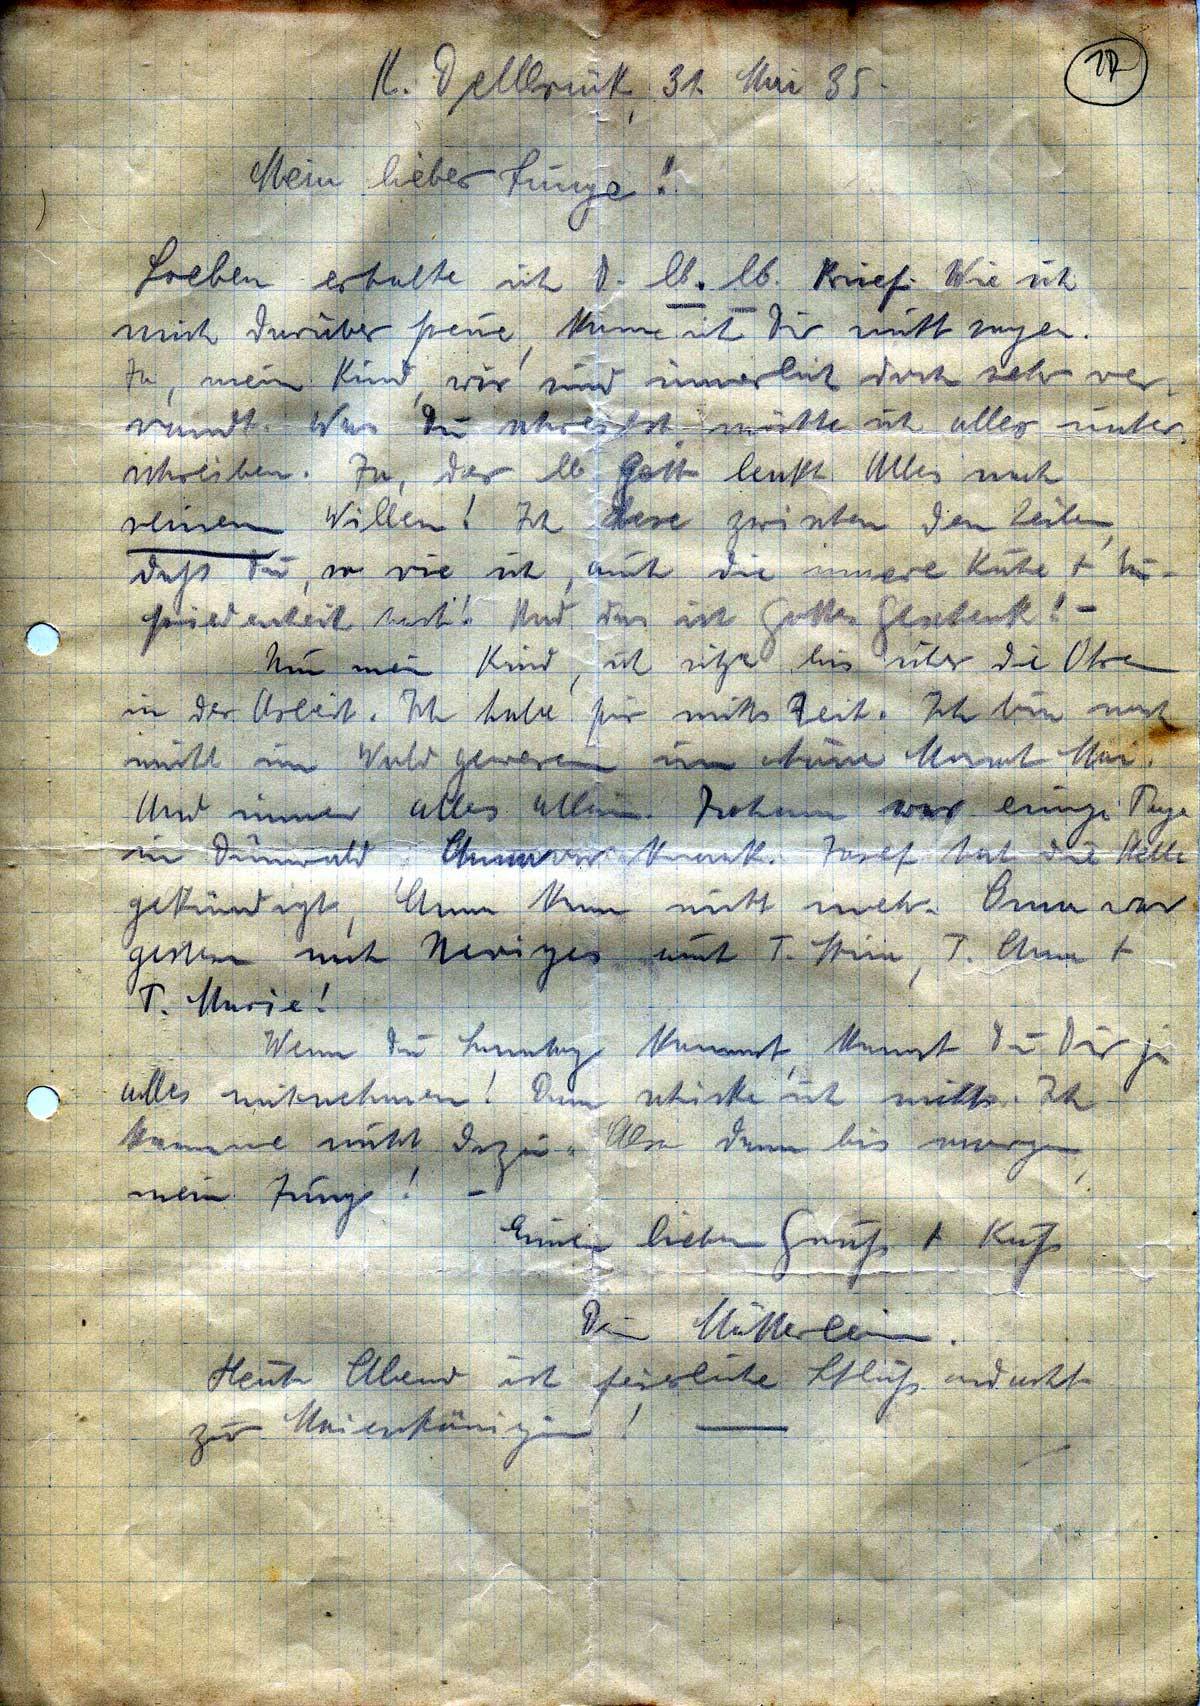 K. Dellbrück, 31. Mai 35.
17
Mein lieber Junge!
Soeben erhalte ich D. lb. lb. Brief. Wie ich
mich darüber freue, kann ich Dir nicht sagen.
Ja, mein Kind, wir sind innerlich doch sehr ver-
wandt. Was Du schreibst, möchte ich alles unter-
schreiben. Ja, der lb Gott lenkt Alles nach
seinem Willen! Ich lese zwischen den Zeilen,
daß Du, so wie ich, auch die innere Ruhe + Zu-
friedenheit hast! Und das ist Gottes Geschenk! -
Nun mein Kind, ich sitze bis über die Ohren
in der Arbeit. Ich habe für nichts Zeit. Ich bin noch
nicht im Wald gewesen im schönen Monat Mai.
Und immer alles allein. Johann war einige Tage
in Dünwald, Anna war krank. Josef hat die Stelle
gekündigt, Anna kann nicht mehr. Oma war
gestern nach Neviges mit T. Stina, T. Anna +
T. Marie!
Wenn Du Sonntag kommst, kannst Du Dir ja
alles mitnehmen! Dann schicke ich nichts. Ich
komme nicht dazu. Also dann bis morgen,
mein Junge! -
Einen lieben Gruß + Kuß
Dein Mütterlein.
Heute Abend ist feierliche Schlußandacht
zur Maienkönigin! —